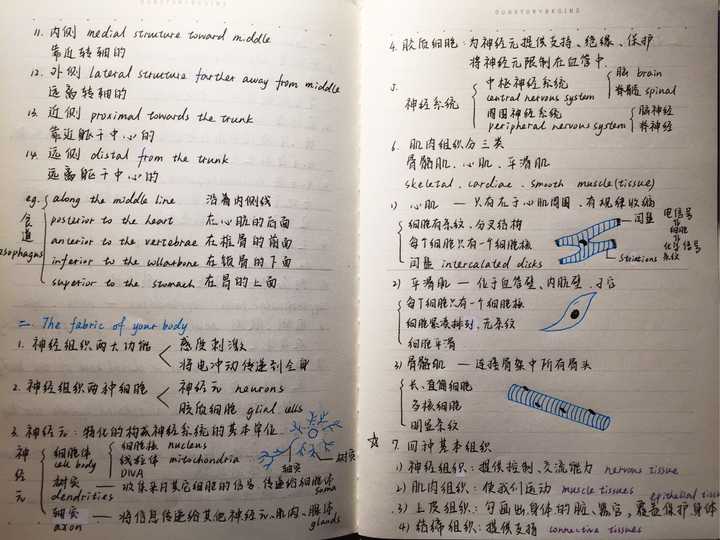 11. 内侧 medial structure toward middle
靠近转轴的
12. 外侧 lateral structure farther away from middle
远离转轴的
13. 近侧 proximal towards the trunk
靠近躯干中心的
14. 远侧 distal from the trunk
远离躯干中心的
eg. along the middle line 沿着内侧线
食道 esophagus
posterior to the heart 在心脏的后面
anterior to the vertebrae 在椎骨的前面
inferior to the collarbone 在锁骨的下面
superior to the stomach 在胃的上面
二. The fabric of your body
1. 神经组织两大功能
感应刺激
将电冲动传递到全身
2. 神经组织两种细胞
神经元 neurons
胶质细胞 glial cells
3. 神经元: 特化的构成神经系统的基本单位
神经元
细胞体 cell body
细胞核 nucleus
线粒体 mitochondria
DNA
树突 dendrites — 收集来自其它细胞的信号,传递给细胞体 soma
轴突 axon — 将信息传递给其他神经元、肌肉、腺体 glands
轴突
树突
4. 胶质细胞: 为神经元提供支持、绝缘、保护
将神经元限制在血管中.
5. 神经系统
中枢神经系统 central nervous system
脑 brain
脊髓 spinal
周围神经系统 peripheral nervous system
脑神经
脊神经
6. 肌肉组织分三类
骨骼肌、心肌、平滑肌
skeletal . cardiac . smooth muscle (tissue)
1) 心肌 — 只存在于心脏周围,有规律收缩
细胞有条纹,分叉结构
每个细胞只有一个细胞核
闰盘 intercalated disks
闰盘
电信号
细胞
化学信号
Striations 条纹
2) 平滑肌 — 位于血管壁、内脏壁、子宫
每个细胞只有一个细胞核
细胞紧凑排列,无条纹
细胞平滑
3) 骨骼肌 — 连接骨架中所有骨头
长、直筒细胞
多核细胞
明显条纹
7. 四种基本组织
1) 神经组织: 提供控制、交流能力 nervous tissue
2) 肌肉组织: 使我们运动 muscle tissues
3) 上皮组织: 勾画出身体的脏、器官,覆盖保护身体 epithelial
4) 结缔组织: 提供支持 connective tissues